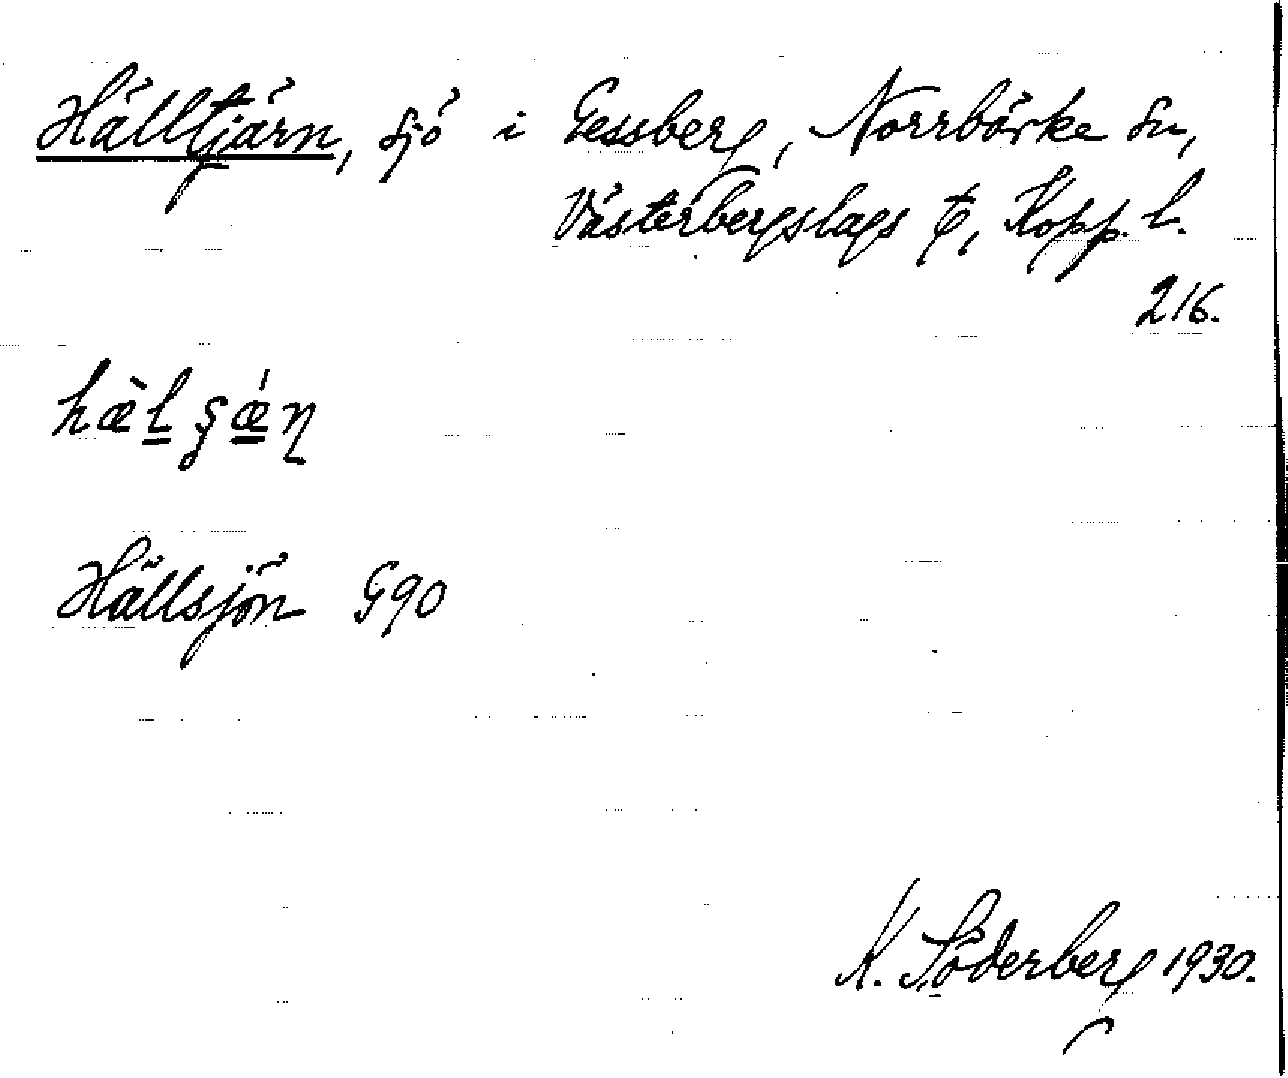 Hälltjärn, sjö i Gessberg, Norrbärke sn,
Västerbergslags t, Kopp. l.
216.
hæ̀l̠ʂǽn
Hällsjön G90
K. Söderberg 1930.